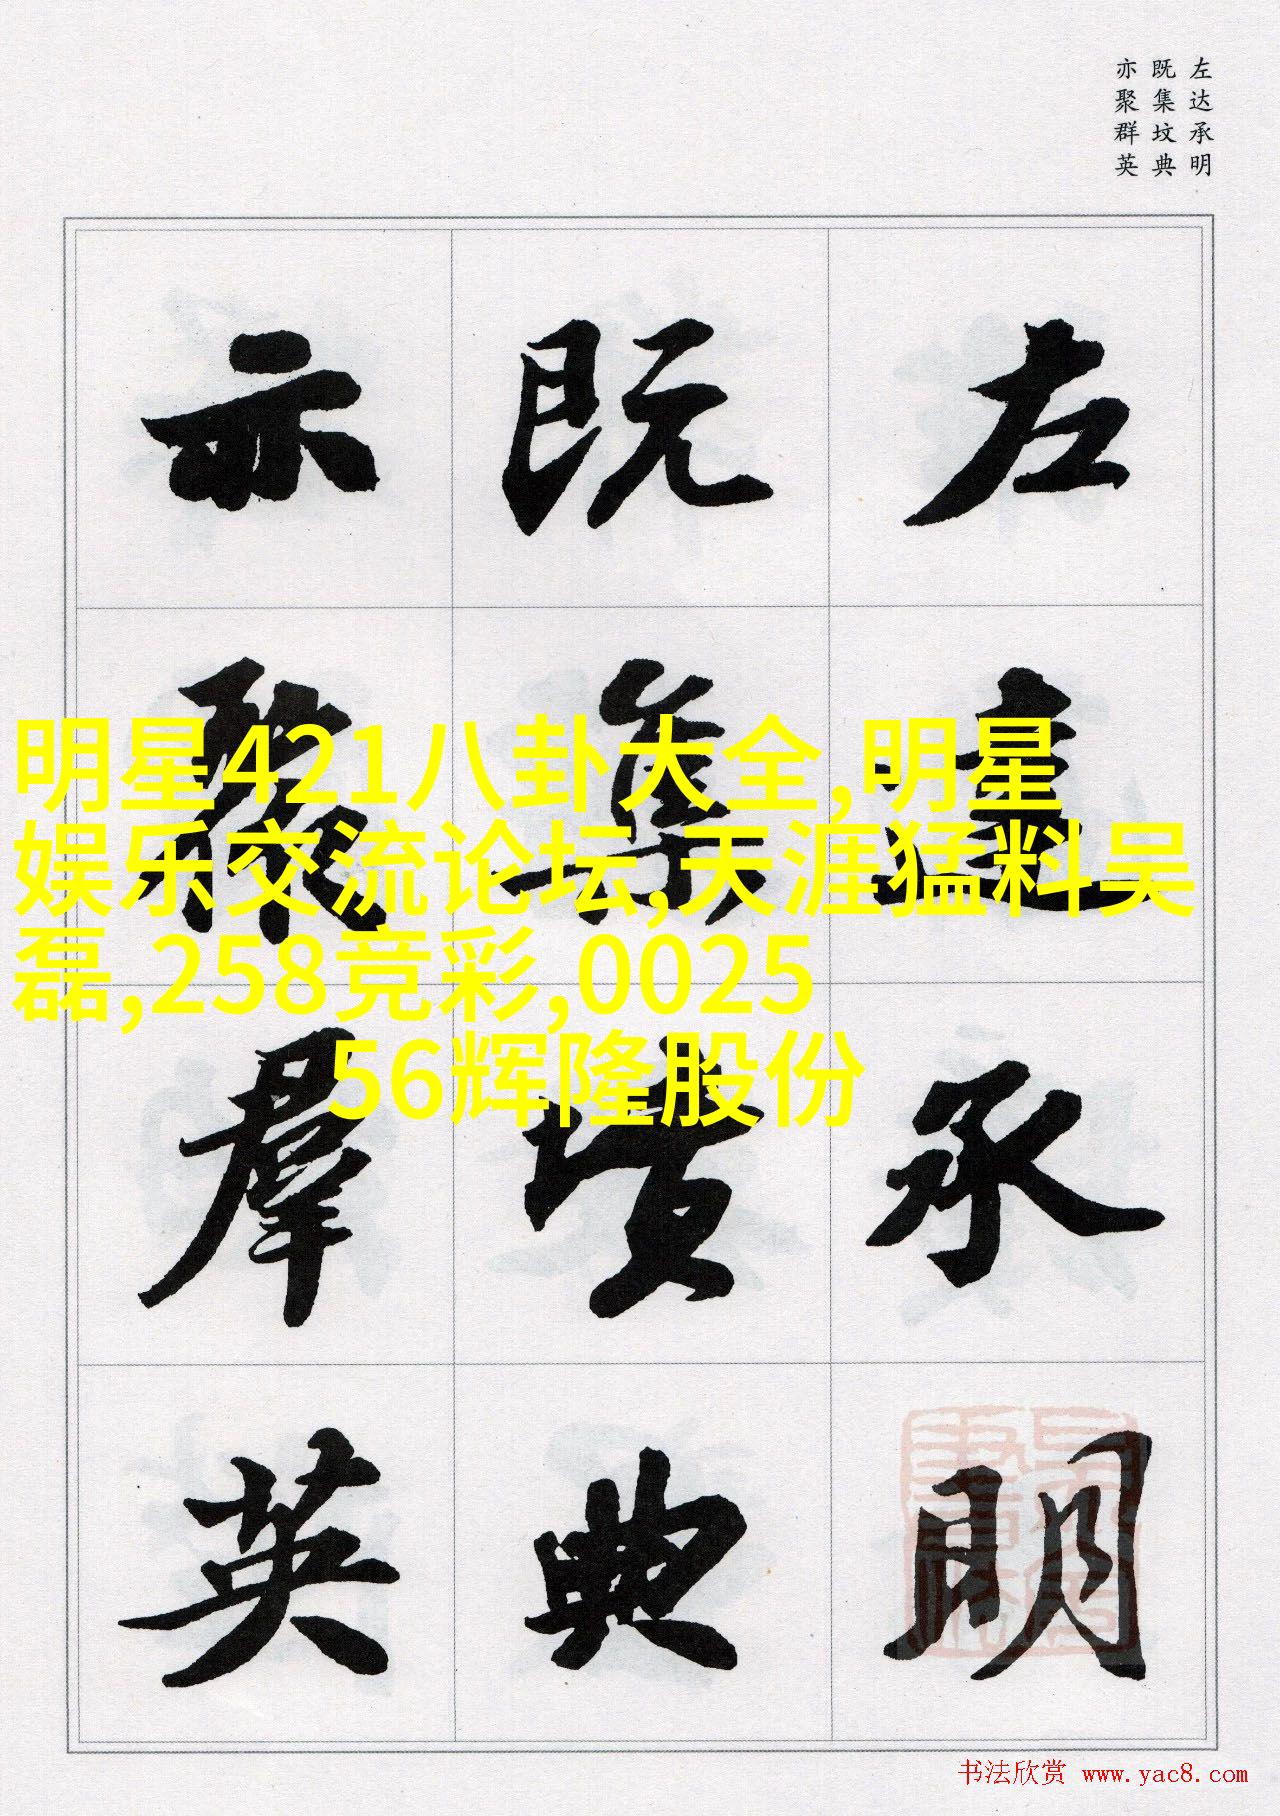 左达承明
既集坟典
亦聚群英
左達承明
既集墳典
亦聚羣英
明星421八卦大全,明星
娱乐交流论坛,天涯猛料吴
磊,258竞彩,0025
56辉隆股份
书法欣赏 www.yac8.com